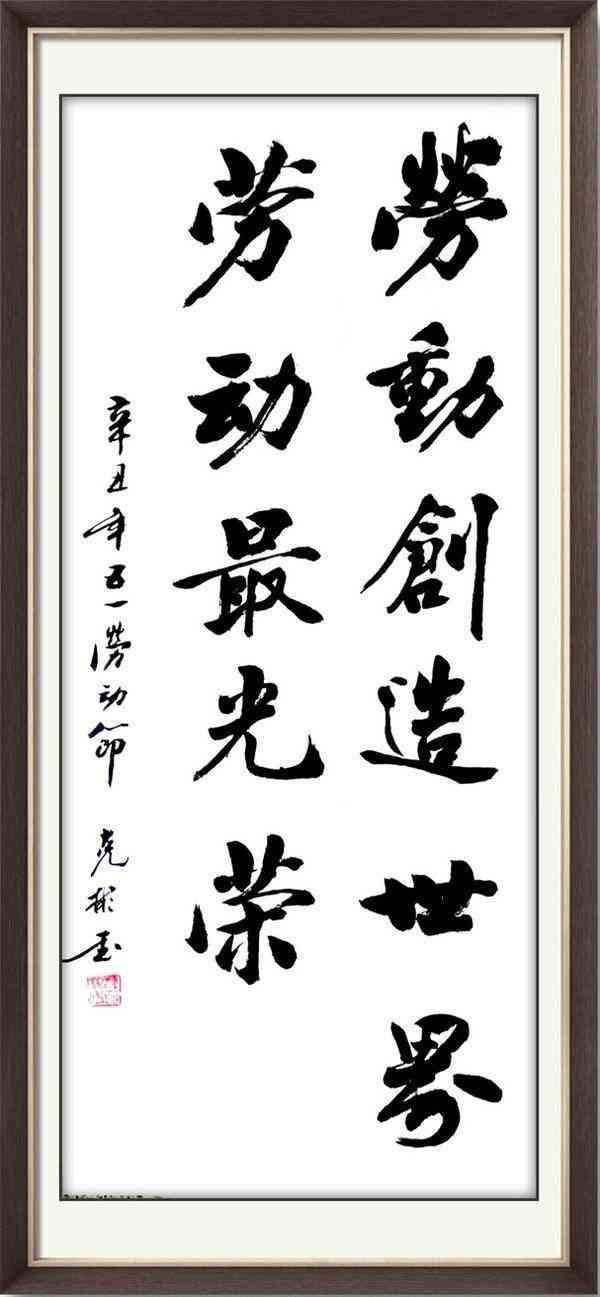 勞動創造世界
劳动最光荣
辛丑年五一劳动節 克彬书